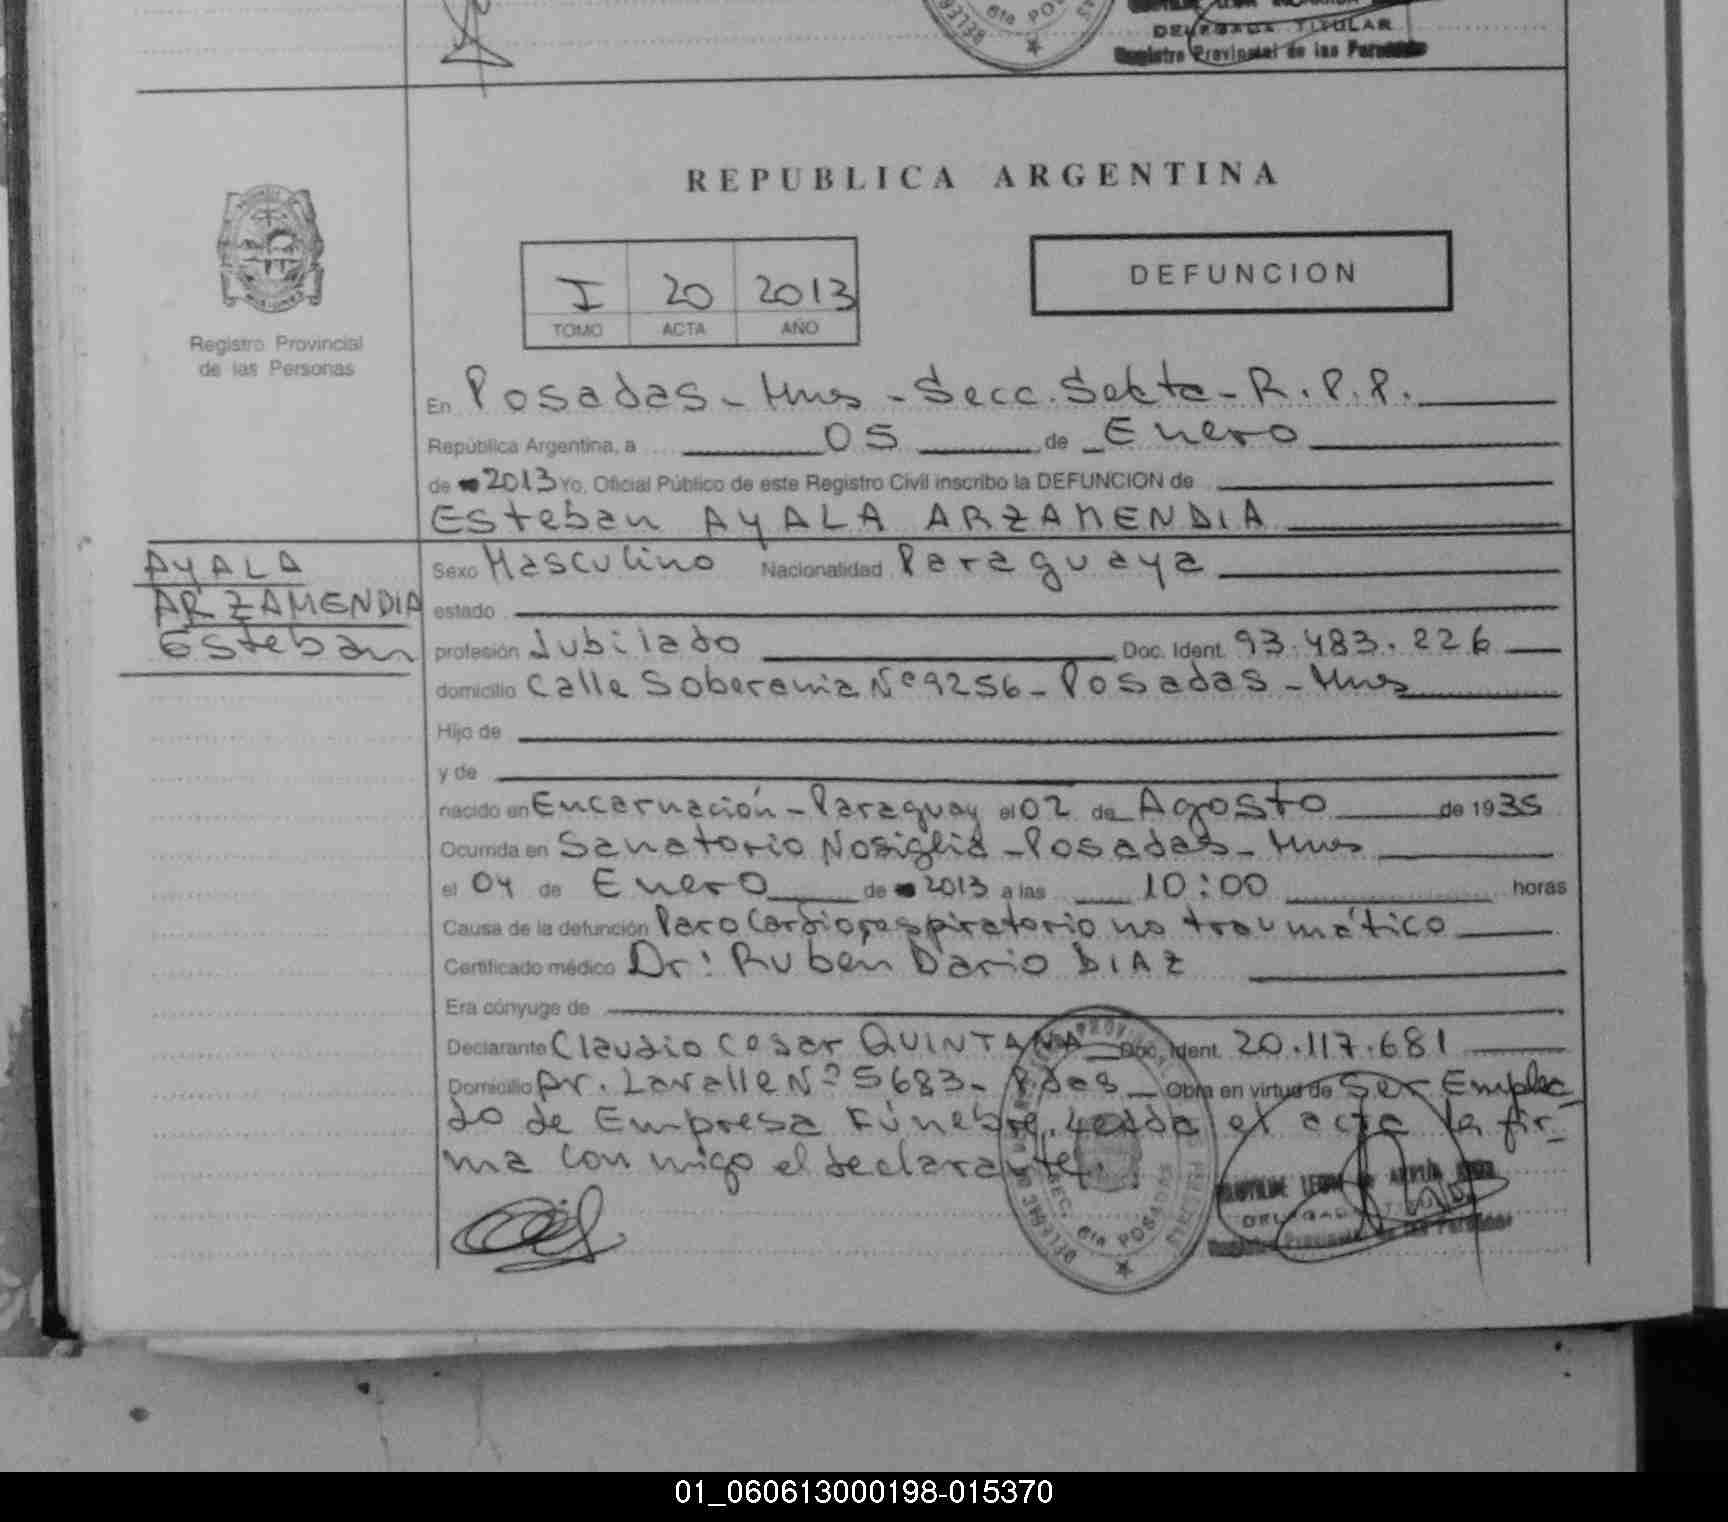 DELEGADA TITULAR
Registro Provincial de las Personas
REPUBLICA ARGENTINA
Registro Provincial
de las Personas
I 20 2013
TOMO ACTA AÑO
DEFUNCION
En Posadas - Mnes - Secc. Sekta - R.P.P.
República Argentina, a 05 de Enero
de 2013 Yo, Oficial Público de este Registro Civil inscribo la DEFUNCION de
Esteban AYALA ARZAMENDIA
AYALA
ARZAMENDIA
Esteban
Sexo Masculino Nacionalidad Paraguaya
estado
profesión Jubilado Doc. Ident. 93.483.226
domicilio Calle Soberania Nº 9256 - Posadas - Mnes
Hijo de
y de
nacido en Encarnación - Paraguay el 02 de Agosto de 1935
Ocurrida en Sanatorio Nosiglia - Posadas - Mnes
el 04 de Enero de 2013 a las 10:00 horas
Causa de la defunción Paro Cardiorespiratorio no traumático
Certificado médico Dr: Ruben Dario DIAZ
Era cónyuge de
Declarante Claudio Cesar QUINTANA Doc. Ident. 20.117.681
Domicilio Av. Lavalle Nº 5683 - Pdas - Obra en virtud de Ser Emplea-
do de Empresa Fúnebre. Leida el acta la fir-
ma con migo el declarante.
SEC. 6ta POSADAS
01_060613000198-015370